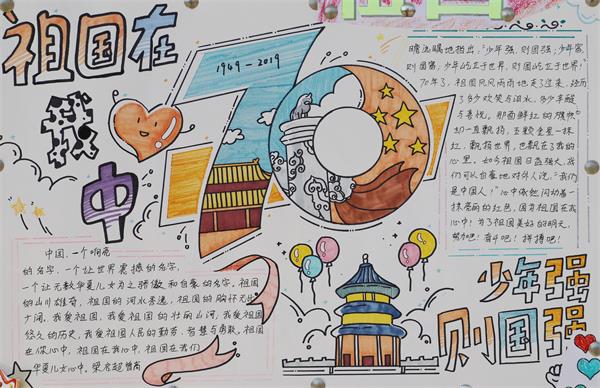 祖国在
我
中
1949-2019
70
瞻远瞩地指出:"少年强,则国强;少年富,
则国富;少年屹立于世界,则国屹立于世界"
70年了,祖国风风雨雨地走了过来,经历
了多少欢笑与泪水,多少辛酸
与喜悦。那面鲜红的旗帜
却一直飘扬,五颗金星一抹
红,飘扬世界,也飘在了我的
心里。如今祖国日益强大,我
们可以自豪地对外人说,"我们
是中国人!"心中依然闪动着一
抹亮丽的红色,因为祖国在我
心中!为了祖国美好的明天,
努力吧!奋斗吧!拼搏吧!
中国,一个响亮
的名字,一个让世界震撼的名字,
一个让无数华夏儿女为之骄傲和自豪的名字。祖国
的山川雄奇,祖国的河水秀逸,祖国的胸怀无比
广阔。我爱祖国,我爱祖国的壮丽山河,我爱祖国
悠久的历史,我爱祖国人民的勤劳、智慧与勇敢。祖国
在你心中,祖国在我心中,祖国在我们
华夏儿女心中。梁启超曾高
少年强
则国强